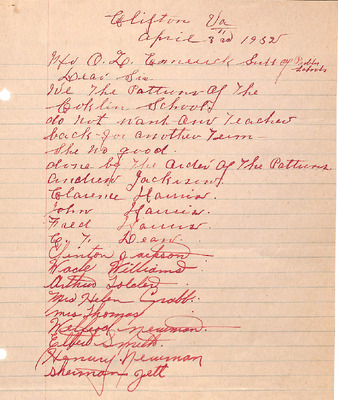 Clifton Va
April 3rd 1932
Mr O. L. Emerick Supt of Public Schools
Dear Sir
We The Pattrons Of The
Conklin School
do not want Our Teacher
back for another Term
She No good.
done by The Order Of The Pattrons
Andrew Jackson
Clarence Harris.
John Harris.
Fred Harris
C. F. Dean.
Clinton Jackson
Wade Williams.
Arthur
Mrs Helen Grabb.
Mrs Thomas
Newman.
Elbert Smith.
Henry Newman
Sherman Jett